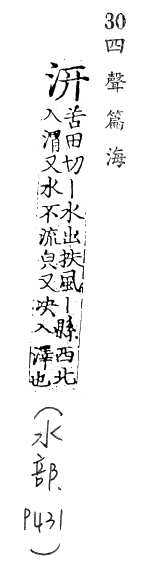 30 四聲篇海
汧
苦田切丨水出扶風丨縣西北
入渭又水不流皃又决入澤也
(水部、P431)